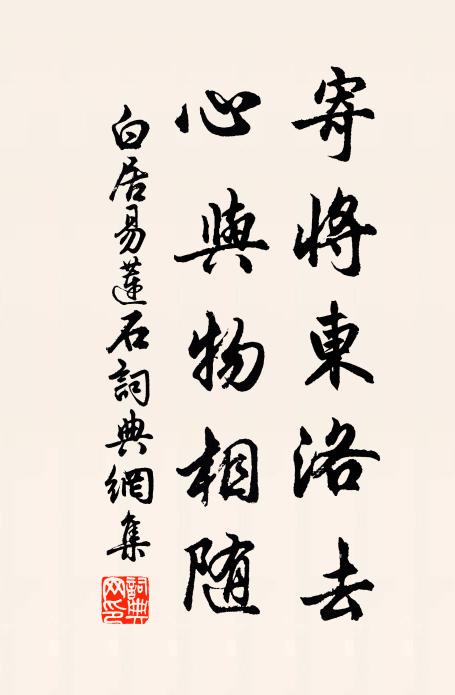 寄將東洛去
心與物相隨
白居易蓮石詞典網集
詞典网印